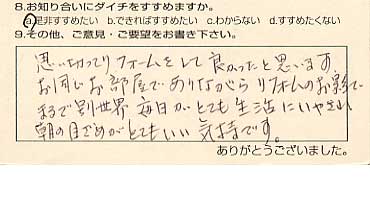 8.お知り合いにダイチをすすめますか。
a.是非すすめたい b.できればすすめたい c.わからない d.すすめたくない
9.その他、ご意見・ご要望をお書き下さい。
思い切ってリフォームをして良かったと思います。
お同じお部屋でありながらリフォームのお彩で
まるで別世界 毎日がとても生活にいやされ
朝の目ざめがとてもいい気持です。
ありがとうございました。